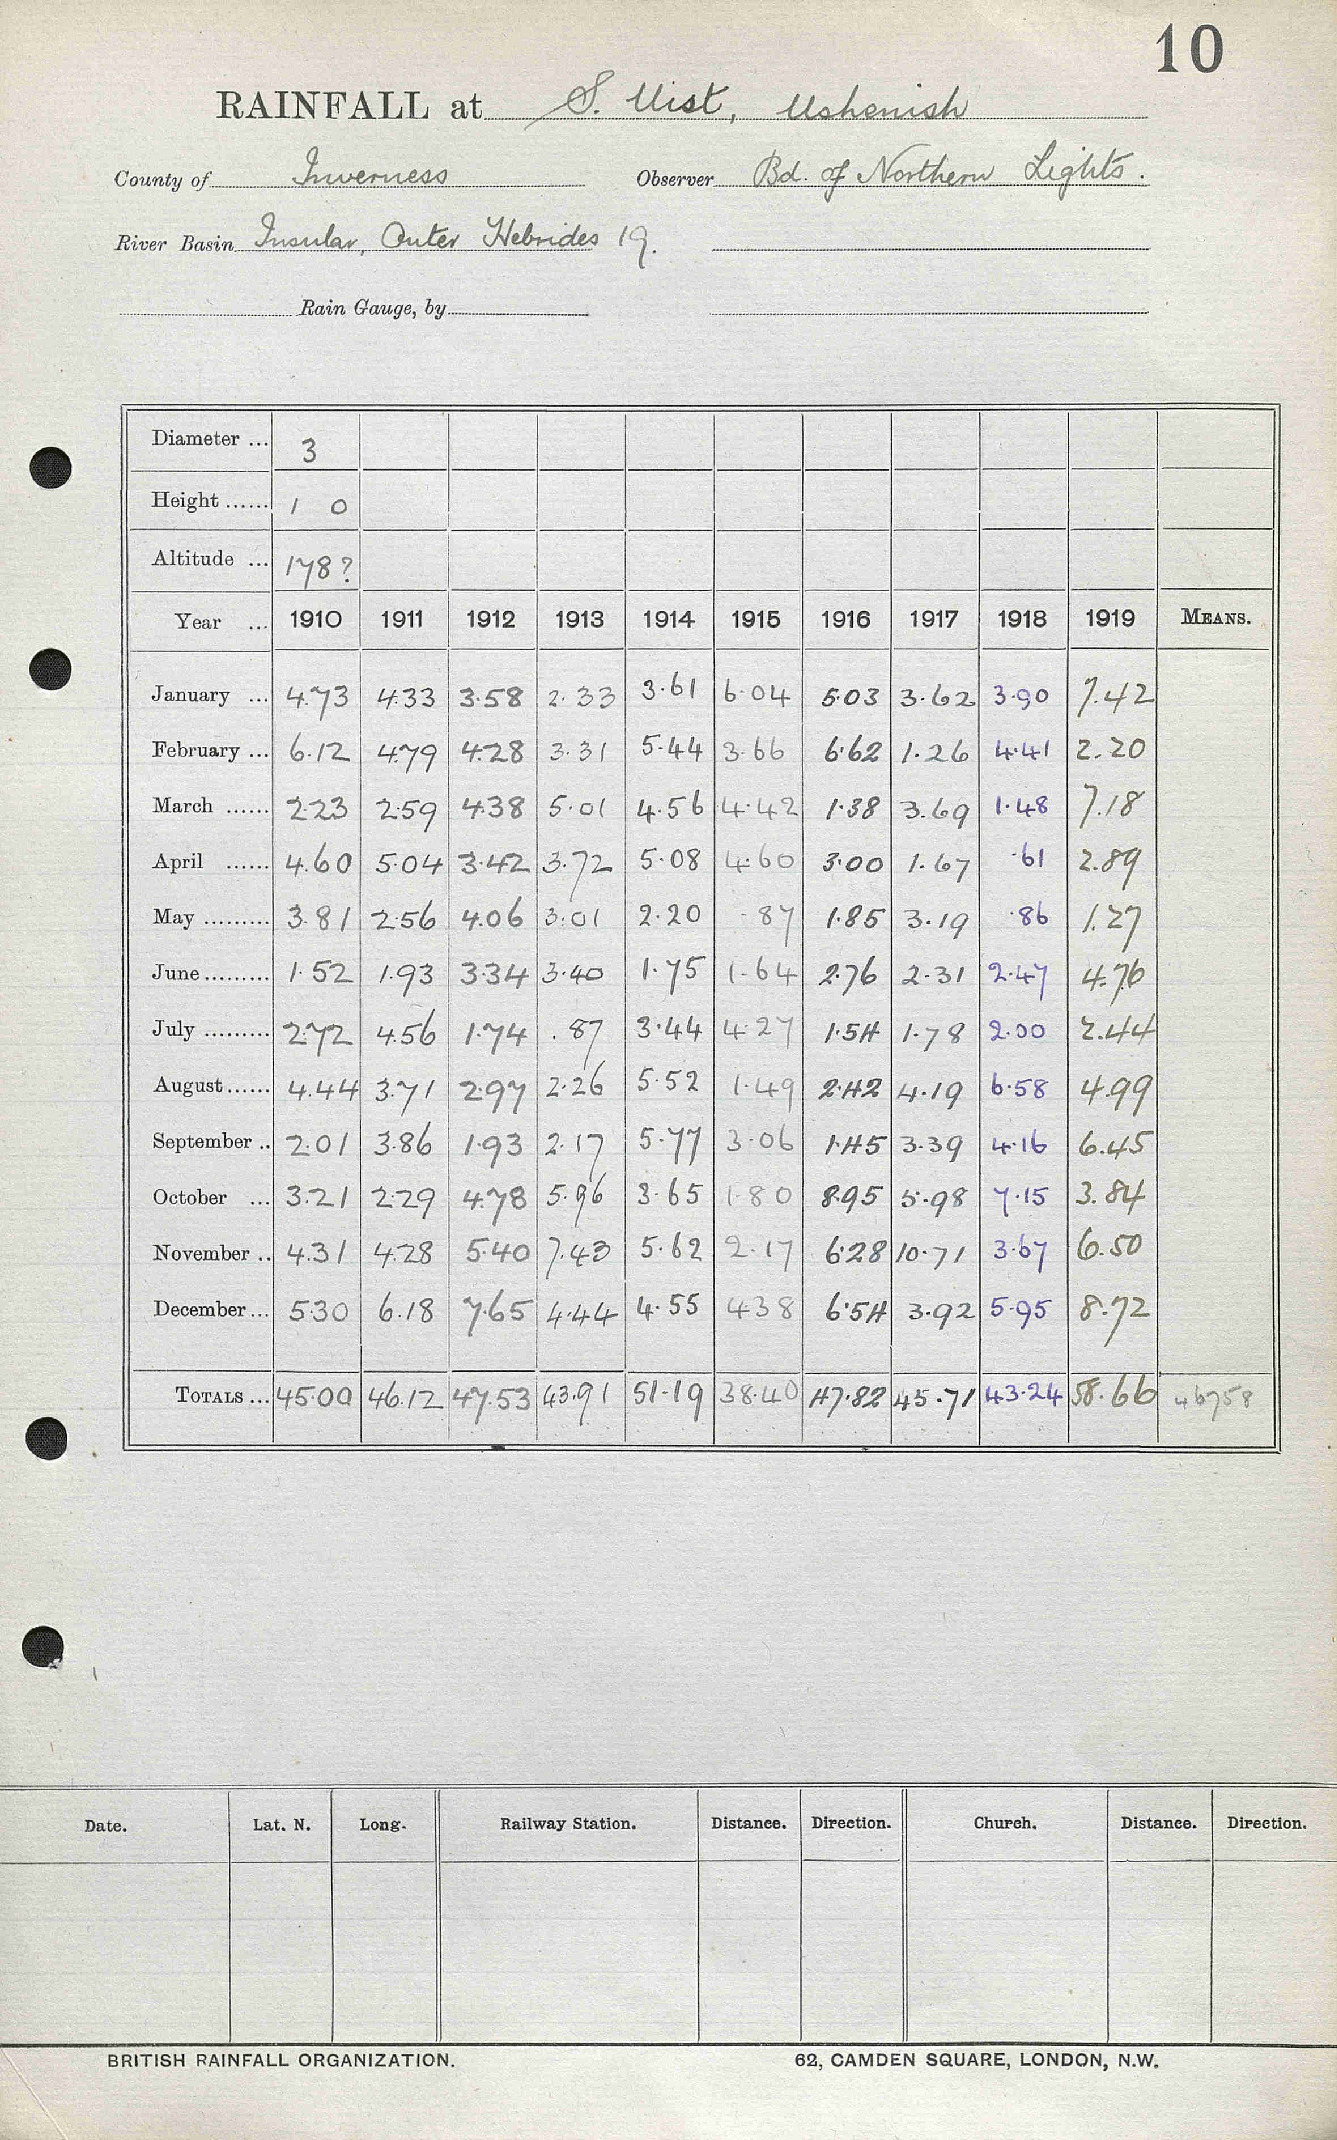 10
RAINFALL at S. Uist, Ushenish
County of Inverness Observer Bd. of Northern Lights.
River Basin Insular, Outer Hebrides 19.
Rain Gauge, by
Diameter ... 3
Height ...... 1 0
Altitude ... 178?
Year ... 1910 1911 1912 1913 1914 1915 1916 1917 1918 1919 MEANS.
January ... 4.73 4.33 3.58 2.33 3.61 6.04 5.03 3.62 3.90 7.42
February ... 6.12 4.79 4.28 3.31 5.44 3.66 6.62 1.26 4.41 2.20
March ...... 2.23 2.59 4.38 5.01 4.56 4.42 1.38 3.69 1.48 7.18
April ...... 4.60 5.04 3.42 3.72 5.08 4.60 3.00 1.67 .61 2.89
May ......... 3.81 2.56 4.06 3.01 2.20 .87 1.85 3.19 .86 1.27
June ......... 1.52 1.93 3.34 3.40 1.75 1.64 2.76 2.31 2.47 4.76
July ......... 2.72 4.56 1.74 .87 3.44 4.27 1.54 1.78 2.00 2.44
August ...... 4.44 3.71 2.97 2.26 5.52 1.49 2.42 4.19 6.58 4.99
September .. 2.01 3.86 1.93 2.17 5.77 3.06 1.45 3.39 4.16 6.45
October ... 3.21 2.29 4.78 5.96 3.65 1.80 8.95 5.98 7.15 3.84
November .. 4.31 4.28 5.40 7.43 5.62 2.17 6.28 10.71 3.67 6.50
December ... 5.30 6.18 7.65 4.44 4.55 4.38 6.54 3.92 5.95 8.72
TOTALS ... 45.00 46.12 47.53 43.91 51.19 38.40 47.82 45.71 43.24 58.66 46758
Date. Lat. N. Long. Railway Station. Distance. Direction. Church. Distance. Direction.
BRITISH RAINFALL ORGANIZATION. 62, CAMDEN SQUARE, LONDON, N.W.